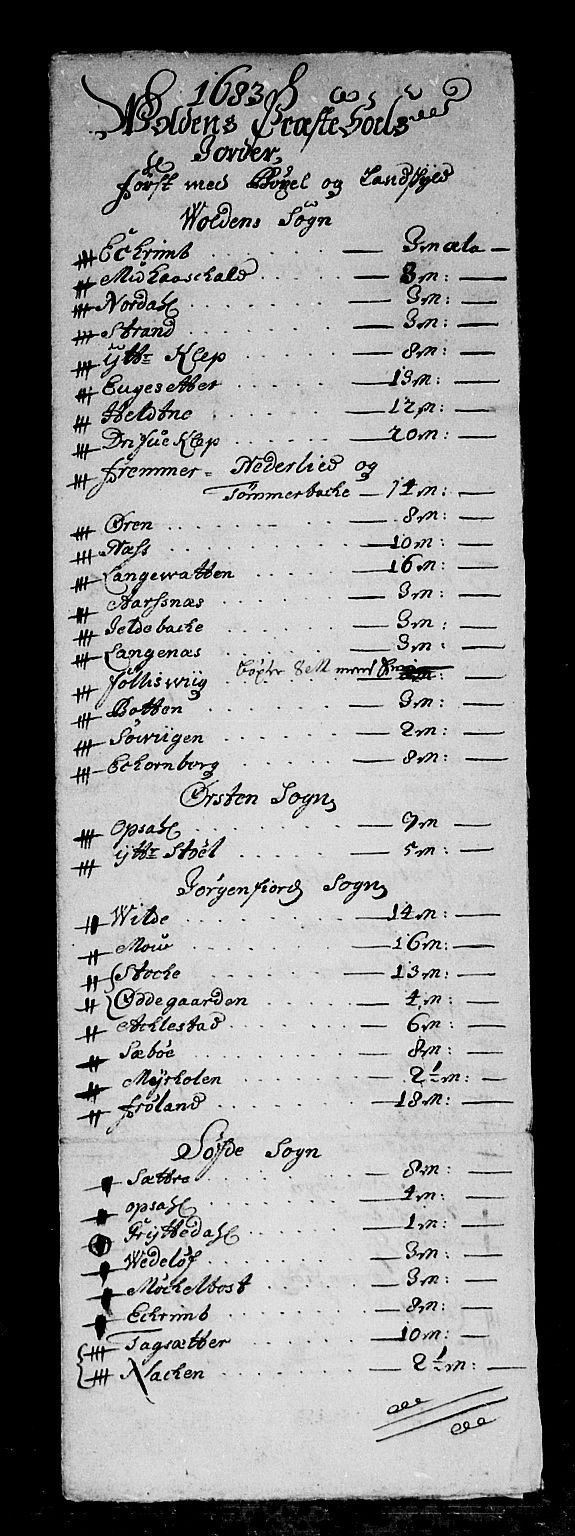 1683
Woldens Præsteboels
Jorder,
først med Böxel og Landskyld
Woldens Sogn
Eckrimb — 3 mæla —
Midkaaschald — 8 m: —
Nordahl — 3 m: —
Strand — 3 m: —
ÿtte Klep — 8 m: —
Eugesetter — 13 m: —
Heldtne — 12 m: —
Drifue Klep — 20 m: —
fremmer= Nederlied og
Tömmerbacke — 14 m: —
Øren — 8 m: —
Næss — 10 m: —
Langewatten — 16 m: —
Aarssnæs — 3 m: —
Jeldebacke — 3 m: —
Langenæs — 3 m: —
folliswiig
Botten — 3 m: —
Söwigen — 2 m: —
Eckornborg — 8 m: —
Ørsten Sogn
Opsahl — 9 m —
ÿtte Stoel — 5 m: —
Jörgenfiord Sogn
Wilde — 14 m: —
Mow — 16 m: —
Stocke — 13 m: —
Oddegaarden — 4 m: —
Acklestad — 6 m: —
Sæböe — 8 m: —
Mÿrholen — 2½ m: —
fröland — 18 m: —
Söfde Sogn
Sættre — 8 m: —
opsahl — 4 m: —
Frÿttedahl — 1 m: —
Wedelöf — 3 m: —
Möckelbost — 3 m: —
Eckrimb — 8 m: —
Fagsætter — 10 m: —
Nacken — 2½ m: —